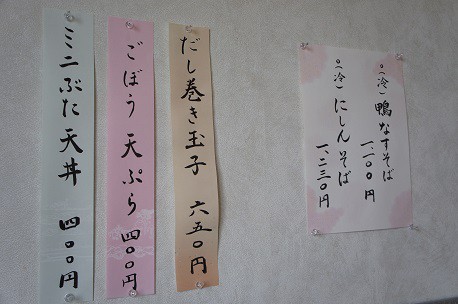 ○(冷)鴨なすそば
一、一〇〇円
○(冷)にしんそば
一、二三〇円
だし巻き玉子 六五〇円
ごぼう天ぷら 四〇〇円
ミニぶた天丼 四〇〇円